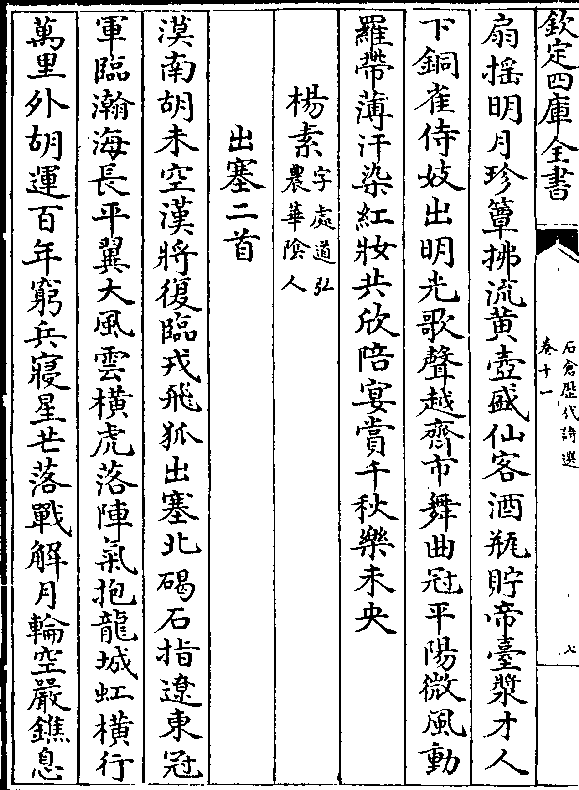 欽定四庫全書
石倉歷代詩選
卷十一
七
扇揺明月珍簟拂流黄壺盛仙客酒瓶貯帝臺漿才人
下銅雀侍妓出明光歌聲越齊市舞曲冠平陽微風動
羅帶薄汗染紅妝共欣陪宴賞千秋樂未央
楊素
字處道弘
農華陰人
出塞二首
漠南胡未空漢將復臨戎飛狐出塞北碣石指遼東冠
軍臨瀚海長平翼大風雲横虎落陣氣抱龍城虹横行
萬里外胡運百年窮兵寢星芒落戰解月輪空嚴鐎息